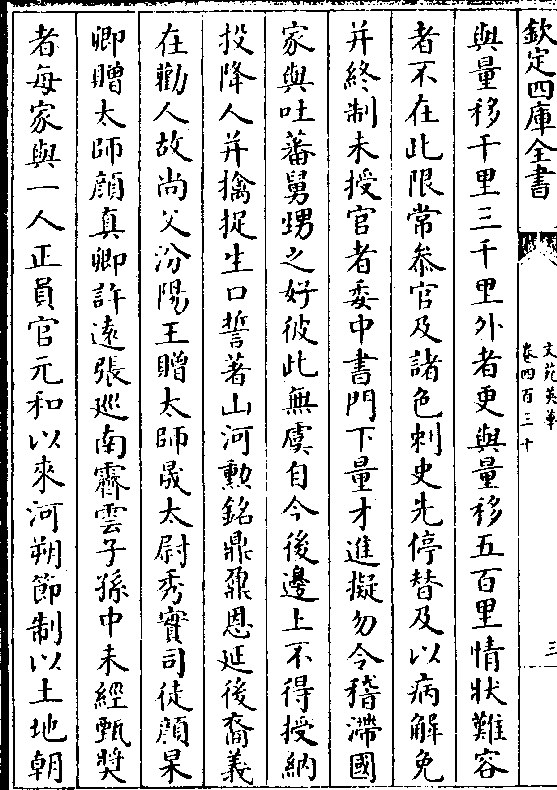 欽定四庫全書
文苑英華
卷四百三十
三
與量移千里三千里外者更與量移五百里情狀難容
者不在此限常叅官及諸色刺史先停替及以病解免
并終制未授官者委中書門下量才進擬勿令稽滯國
家與吐蕃舅甥之好彼此無虞自今後邊上不得授納
投降人并擒捉生口誓著山河勲銘鼎鼐恩延後裔義
在勸人故尚父汾陽王贈太師晟太尉秀實司徒顔杲
卿贈太師顔真卿許遠張廵南霽雲子孫中未經甄奬
者每家與一人正員官元和以來河朔節制以土地朝